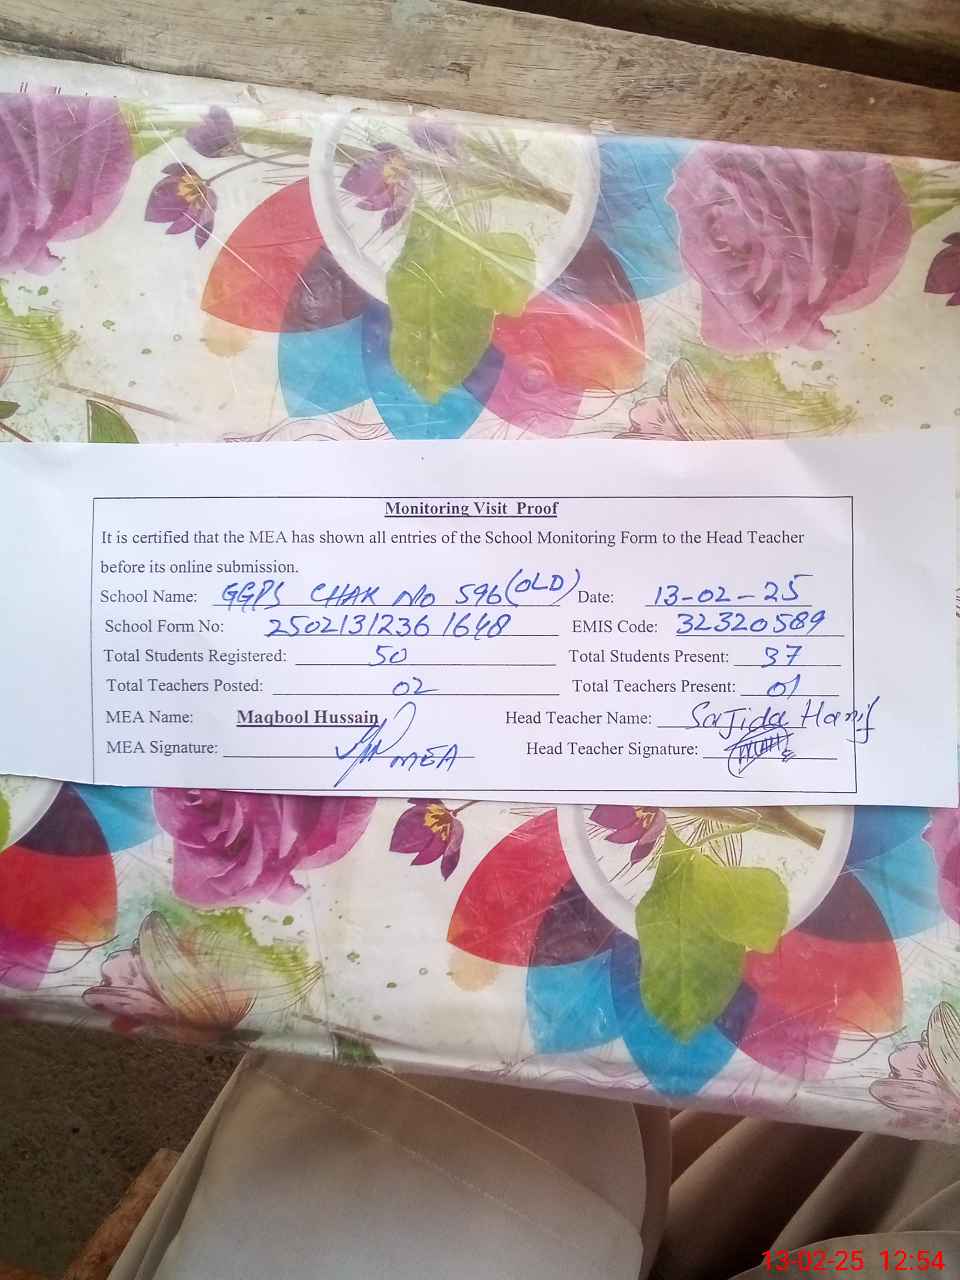 Monitoring Visit Proof
It is certified that the MEA has shown all entries of the School Monitoring Form to the Head Teacher
before its online submission.
School Name: GGPS CHAK NO 596 (OLD) Date: 13-02-25
School Form No: 25021312361648 EMIS Code: 32320589
Total Students Registered: 50 Total Students Present: 37
Total Teachers Posted: 02 Total Teachers Present: 01
MEA Name: Maqbool Hussain Head Teacher Name: Sajida Hanif
MEA Signature: MEA Head Teacher Signature:
13-02-25 12:54